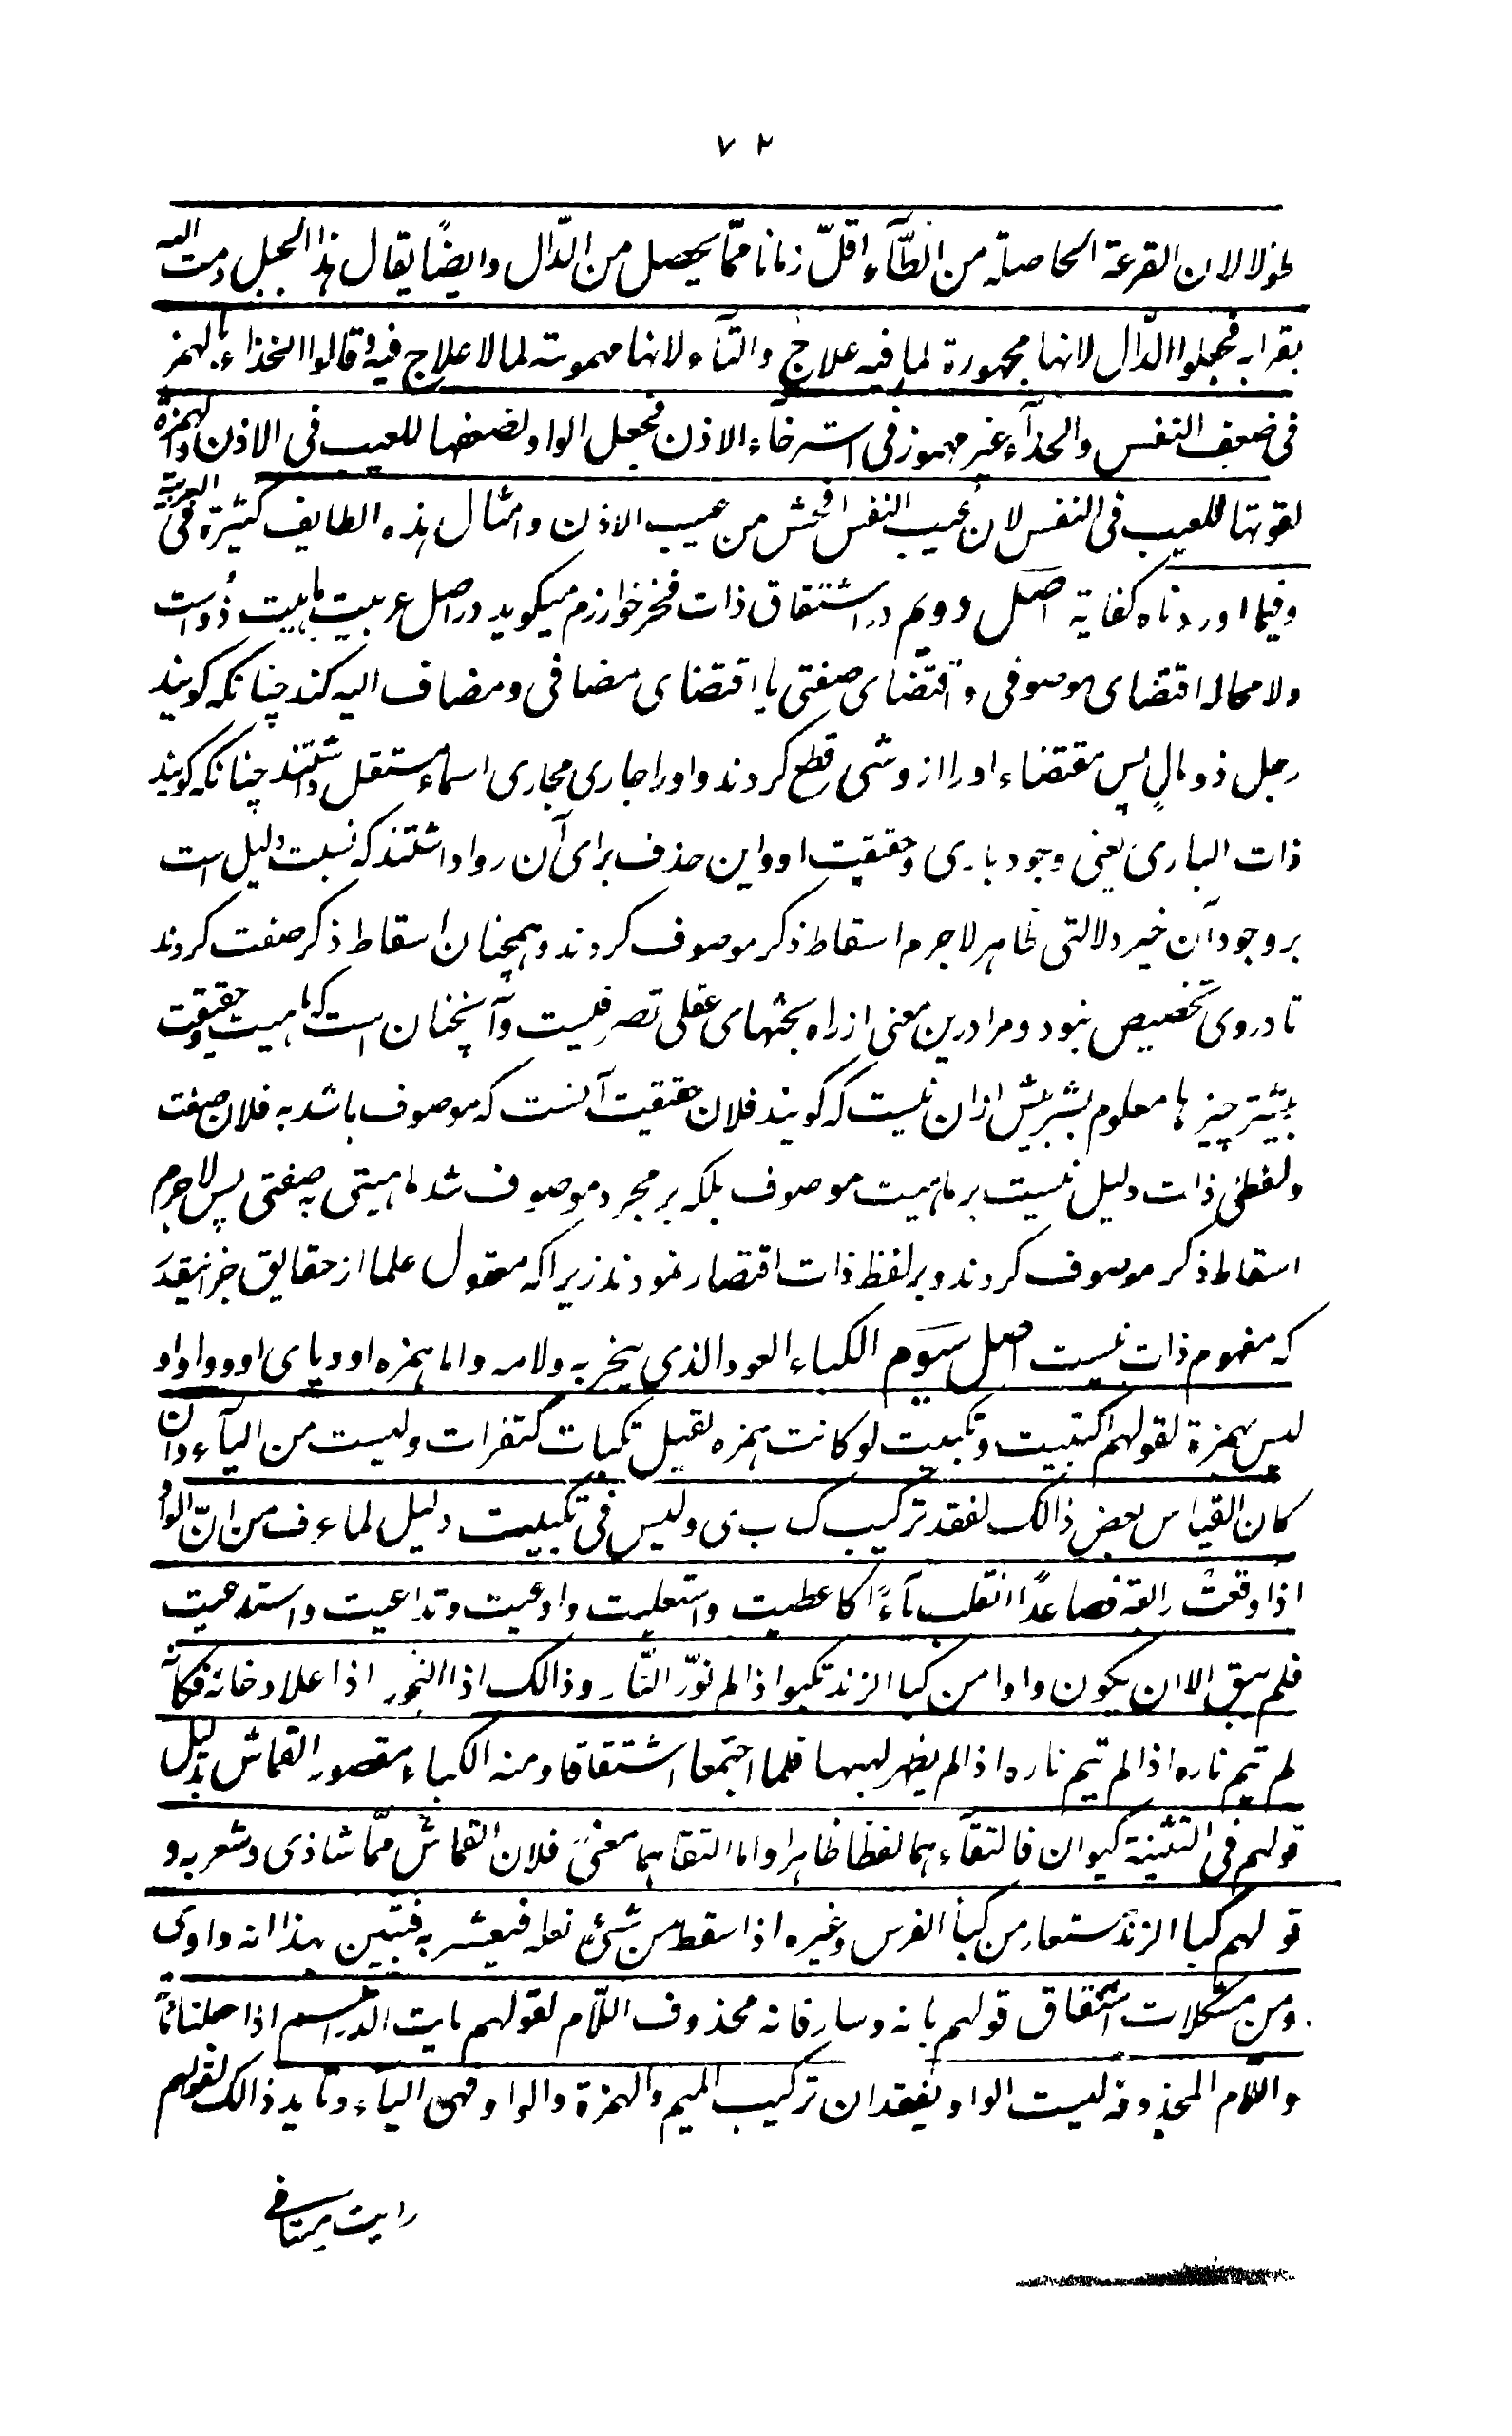 ٧٢
طولا لان القرعة الحاصلة من الطّآء اقلّ زمانا ممّا يحصل من الدّال وايضًا يقال هذا الحبل ومت اليه
بقرابه فجعلوا الدّال لانها مجهورة لما فيه علاج والتآء لانها مهموسة لما لا علاج فيه و قالوا الخذاء بالهمز
فى ضعف النفس والخذآء غير مهموز فى استرخاء الاذن فجعل الواو لضعفها للعيب فى الاذن والهمزة
لقوتها للعيب فى النفس لان عيب النفس افحش من عيب الاذن وامثال هذه الطايف كثيرة فى العربية
وفيما اوردناه كفاية اصل دويم در اشتقاق ذات فخر خوارزم ميكويد در اصل عربيت ماهيت ذُو است
ولا محاله اقتضاى موصوفى و اقتضاى صفتى يا اقتضاى مضافى ومضاف اليه كند چنانكه كويند
رجل ذو مالٍ پس مقتضاء او را از وشى قطع كردند و او را جارى مجارى اسماء مستقل داشتند چنانكه كويند
ذات البارى يعنى وجود بارى وحقيقت او واين حذف براى آن روا داشتند كه نسبت دليل است
بر وجود آن خير دلالتى ظاهر لاجرم اسقاط ذكر موصوف كردند وهمچنان اسقاط ذكر صفت كردند
تا در وى تخصيص نبود ومرا درين معنى از راه بحثهاى عقلى تصرفيست وآنچنان است كه ماهيت وحقيقت
بيشتر چيزها معلوم بشر بيش ازان نيست كه كويند فلان حقيقت آنست كه موصوف باشد به فلان صفت
ولفظى ذات دليل نيست بر ماهيت موصوف بلكه بر مجرد موصوف شد ماهيتى به صفتى پس لاجرم
اسقاط ذكر موصوف كردند وبر لفظ ذات اقتصار نمودند زيراكه معقول علما از حقايق جز اينقدر
كه مفهوم ذات نيست اصل سيوم الكباء العود الذى يبخر به ولامه واما همزه او و ياى او و واو او
ليس بهمزة لقولهم اكتبيت وتكبيت لو كانت همزه لقيل تكبات كتفرات وليست من اليآء وان
كان القياس بعض ذالك لفقد تركيب ك ب ى وليس فى تكبيت دليل لما عرف من انّ الواو
اذا وقعتْ رابعة فصاعدًا انقلب يآءً كاعطيت واستعليت وادعيت وتداعيت واستدعيت
فلم يبق الا ان يكون واوا من كبا الزند تكبوا ذا لم نورّ النّار وذالك اذا البخور اذا علا دخانه فكأنه
لم تتم ناره اذا لم تتم ناره اذا لم يظهر لهبها فلما اجتمعا اشتقاقا ومنه الكباء مقصور القماش بدليل
قولهم فى التثنية كبوان فالتقآءهما لفظا ظاهرا واما التقاهما معنىً فلان القماش ممّا شاذى وشعر به و
قولهم كبا الزند مستعار من كبأ الفرس وغيره اذا سقط من شئ نعله فيعشر به فتبين بهذا انه واوى
ومن مشكلات اشتقاق قولهم بانه وسارفانه محذوف اللّام لقولهم مايت الدراهم اذا جعلنا مائة
واللّام المحذوفة ليست الواو لفقدان تركيب الميم والهمزة والواو فهى اليآء ويايد ذالك لقولهم
رايت